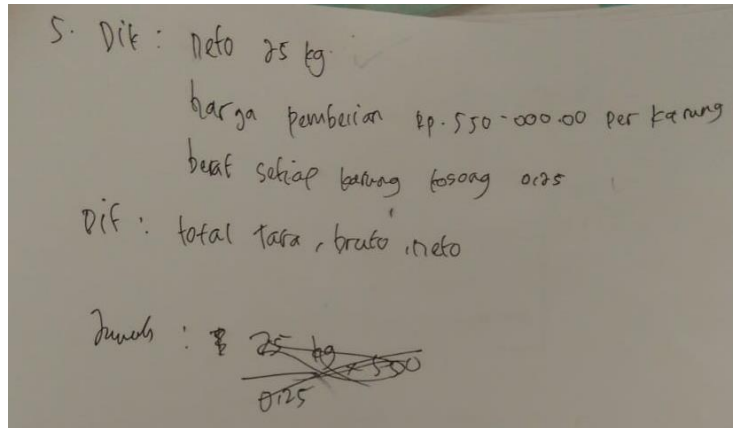 5. Dik : neto 25 kg
harga pemberian Rp. 550.000.00 per karung
berat setiap karung kosong 0,25
Dit : total Tara, bruto, neto
Jawab : 25 kg × 550
0,25